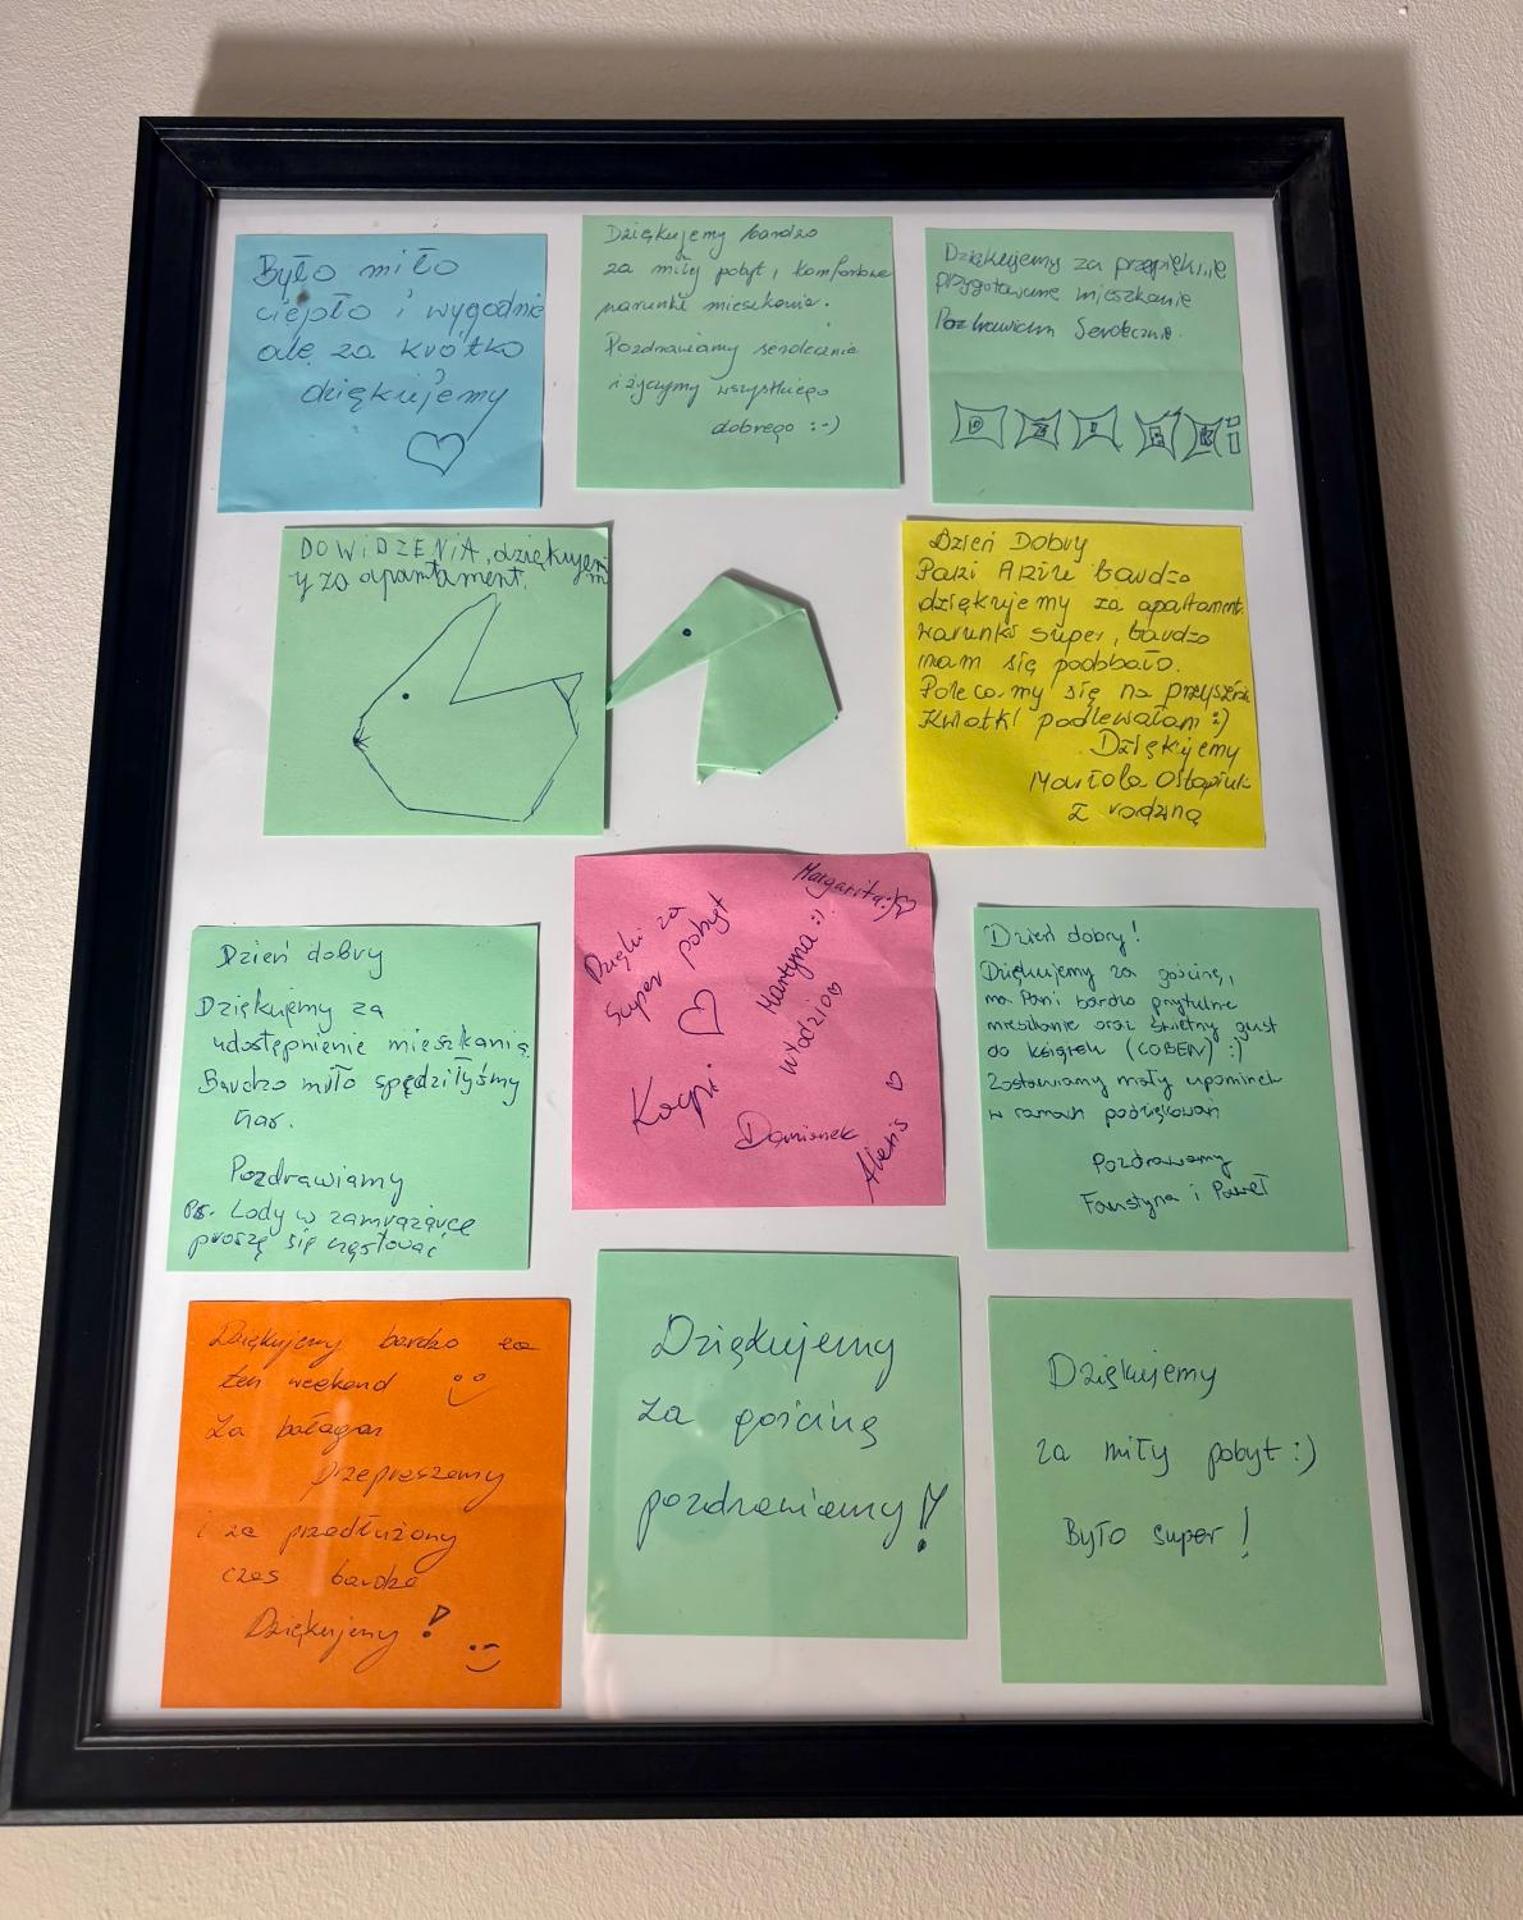 Było miło
ciepło i wygodnie
ale za krótko
dziękujemy
Dziękujemy bardzo
za miły pobyt, komfortowe
warunki mieszkania.
Pozdrawiamy serdecznie
i życzymy wszystkiego
dobrego :-)
Dziękujemy za przepięknie
przygotowane mieszkanie
Pozdrawiam Serdecznie.
DZIĘKI
DOWiDZENiA, dziękujem
y za apartament.
Dzień Dobry
Pani bardzo
dziękujemy za apartament.
warunki super, bardzo
nam się podobało.
Polecamy się na przyszłość
Kwiatki podlewałam :)
Dziękujemy
Mariola Ostapiuk
z rodziną
Dzień dobry
Dziękujemy za
udostępnienie mieszkania.
Bardzo miło spędziłyśmy
czas.
Pozdrawiamy
Ps. Lody w zamrażarce
proszę się częstować
Dzięki za
super pobyt
Margarita :)
Martyna :)
Włodzio
Kacpi
Domisnek
Alexis
Dzień dobry!
Dziękujemy za gościnę,
ma Pani bardzo przytulne
mieszkanie oraz świetny gust
do książek (COBEN) :)
Zostawiamy mały upominek
w ramach podziękowań
Pozdrawiamy
Faustyna i Paweł
Dziękujemy bardzo za
ten weekend
Za bałagan
przepraszamy
i za przedłużony
czas bardzo
Dziękujemy!
Dziękujemy
za gościnę
pozdrawiamy!!
Dziękujemy
za miły pobyt :)
Było super!